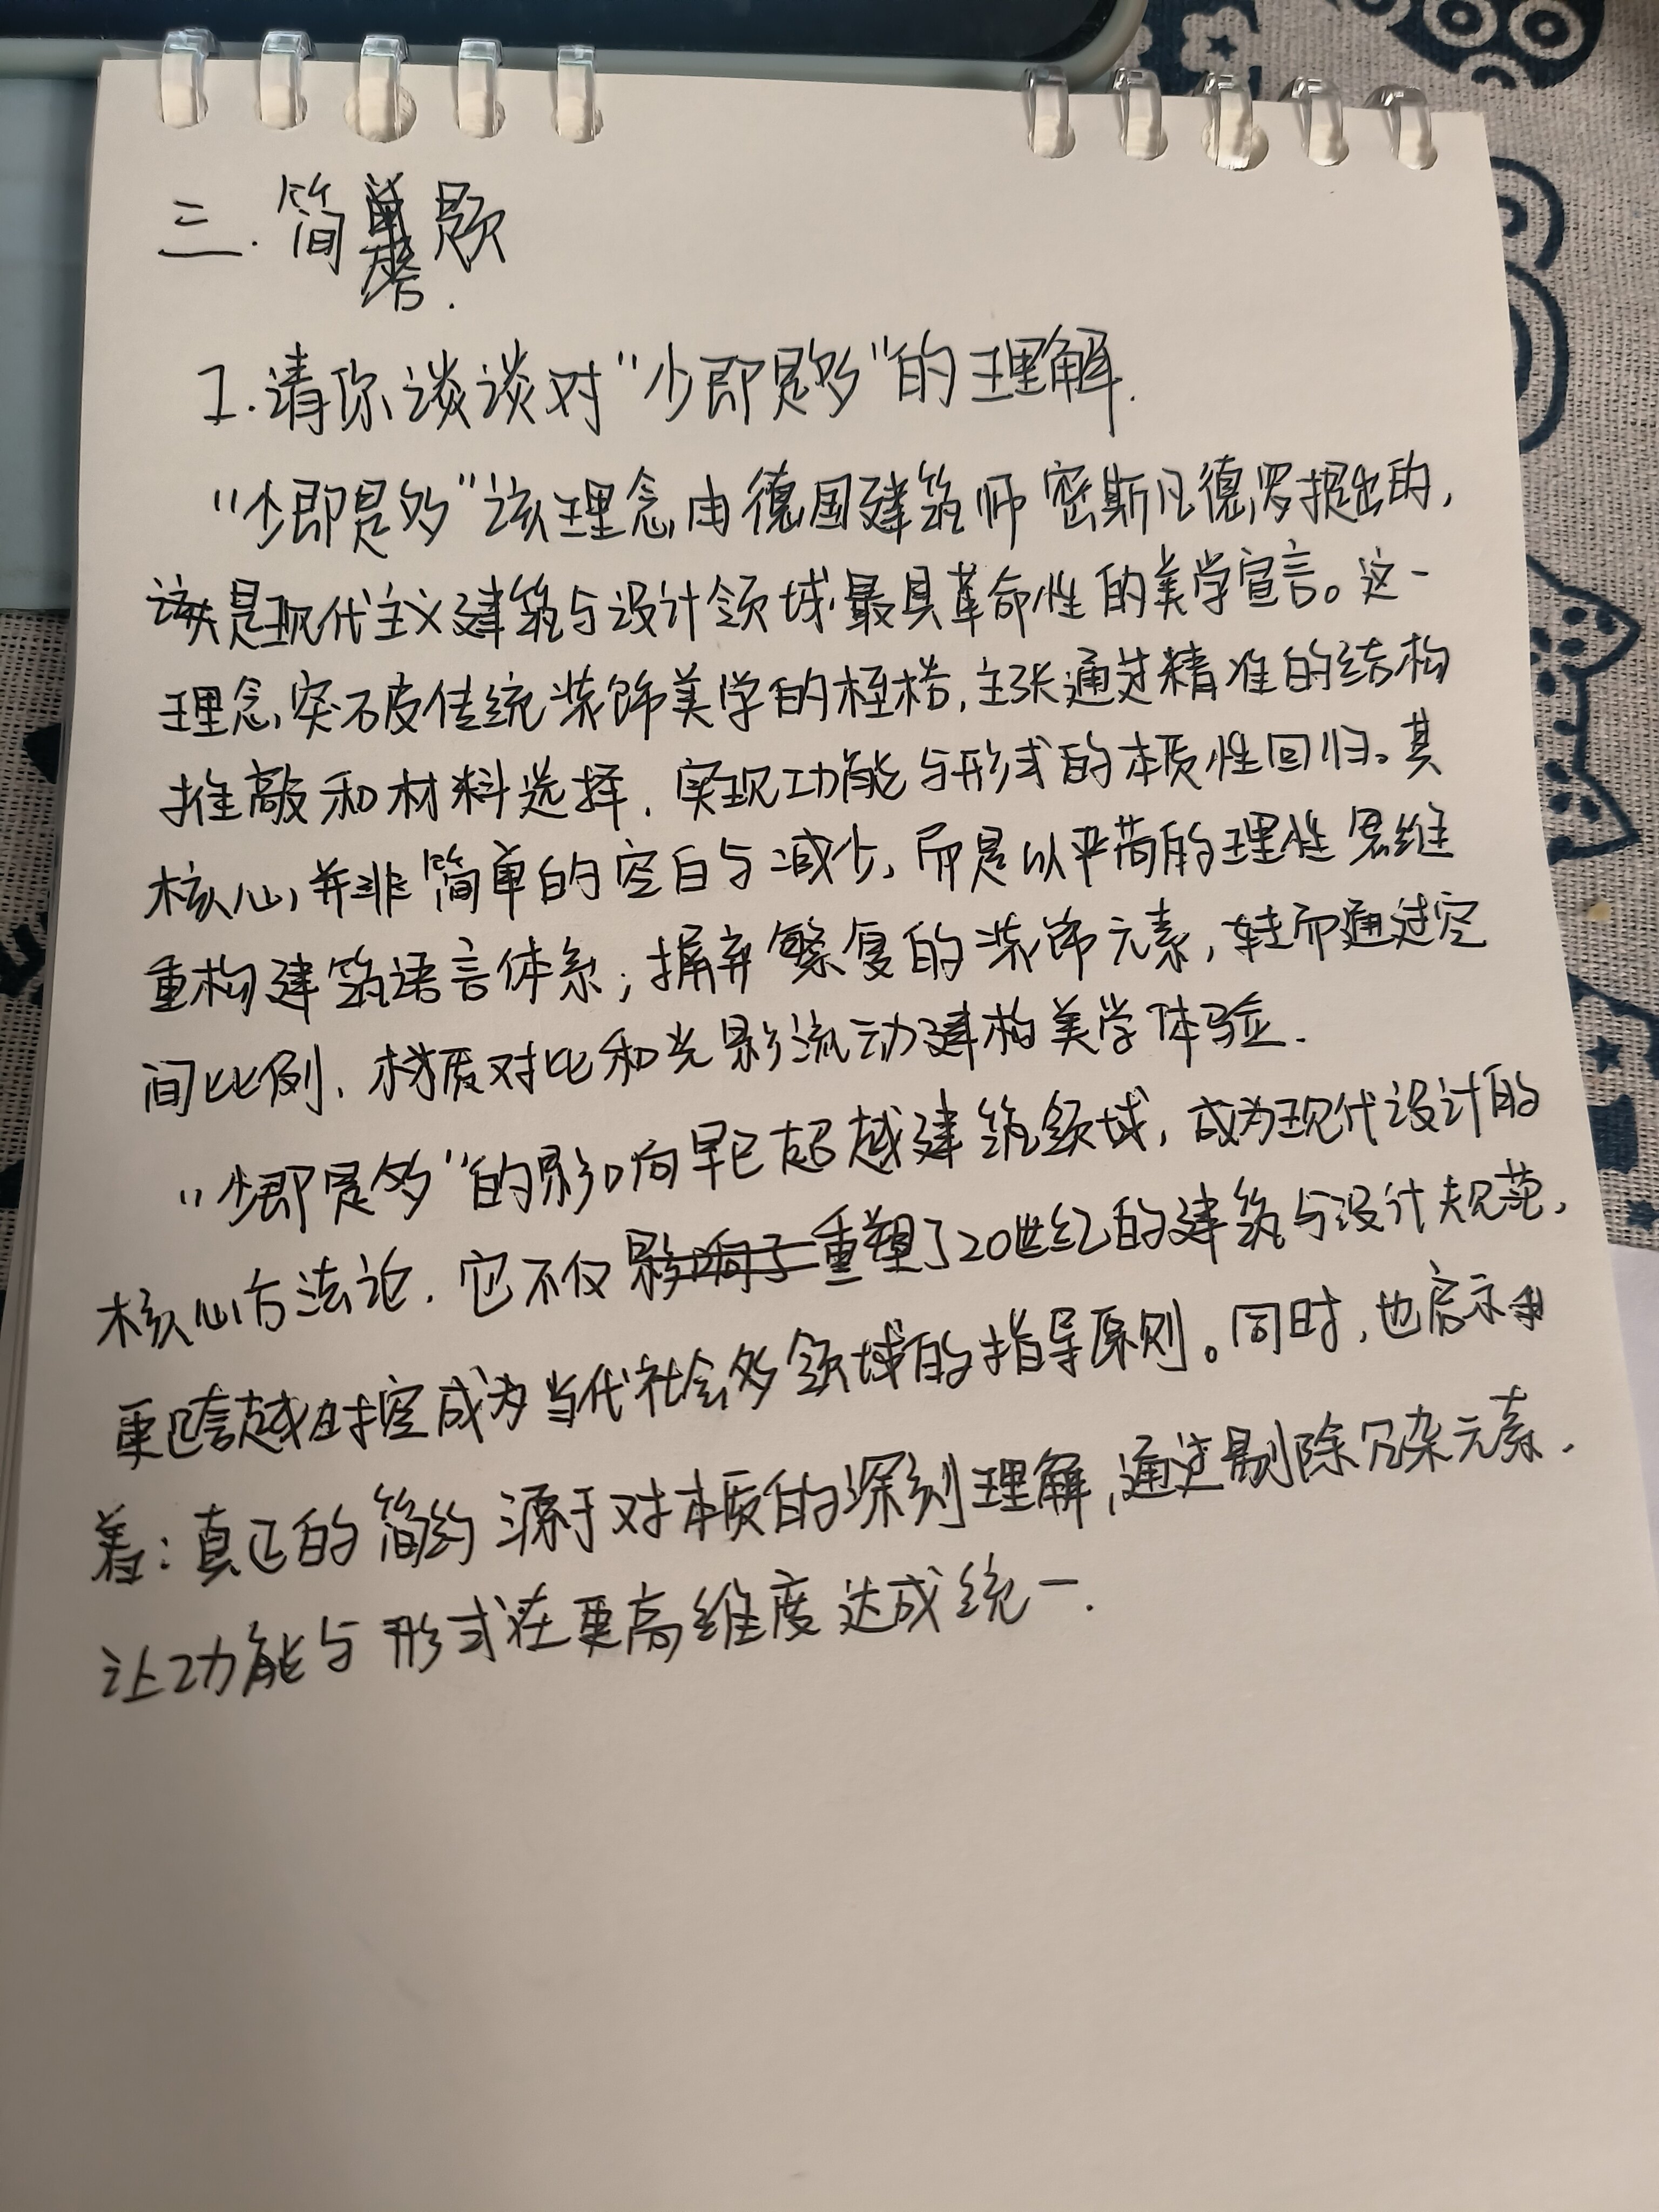 三. 简答题
1. 请你谈谈对“少即是多”的理解.
“少即是多”该理念由德国建筑师密斯凡德罗提出的,
该是现代主义建筑与设计领域最具革命性的美学宣言。这一
理念,突破传统装饰美学的桎梏,主张通过精准的结构
推敲和材料选择,实现功能与形式的本质性回归。其
核心,并非简单的空白与减少,而是以严苛的理性思维
重构建筑语言体系;摒弃繁复的装饰元素,转而通过空
间比例,材质对比和光影流动建构美学体验.
“少即是多”的影响早已超越建筑领域,成为现代设计的
核心方法论. 它不仅重塑了20世纪的建筑与设计规范,
更跨越时空成为当代社会多领域的指导原则。同时,也启示
着:真正的简约源于对本质的深刻理解,通过剔除冗杂元素.
让功能与形式在更高维度达成统一.